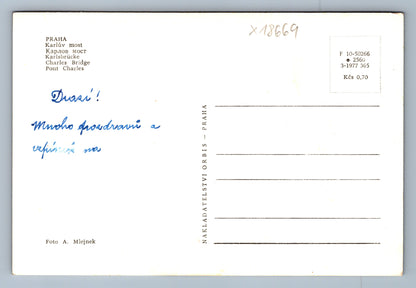 x18669
PRAHA
Karlův most
Карлов мост
Karlsbrücke
Charles Bridge
Pont Charles
F 10-50266
3-1977 365
Kčs 0,70
Drazí!
Mnoho pozdravů a
na
NAKLADATELSTVÍ ORBIS — PRAHA
Foto A. Mlejnek